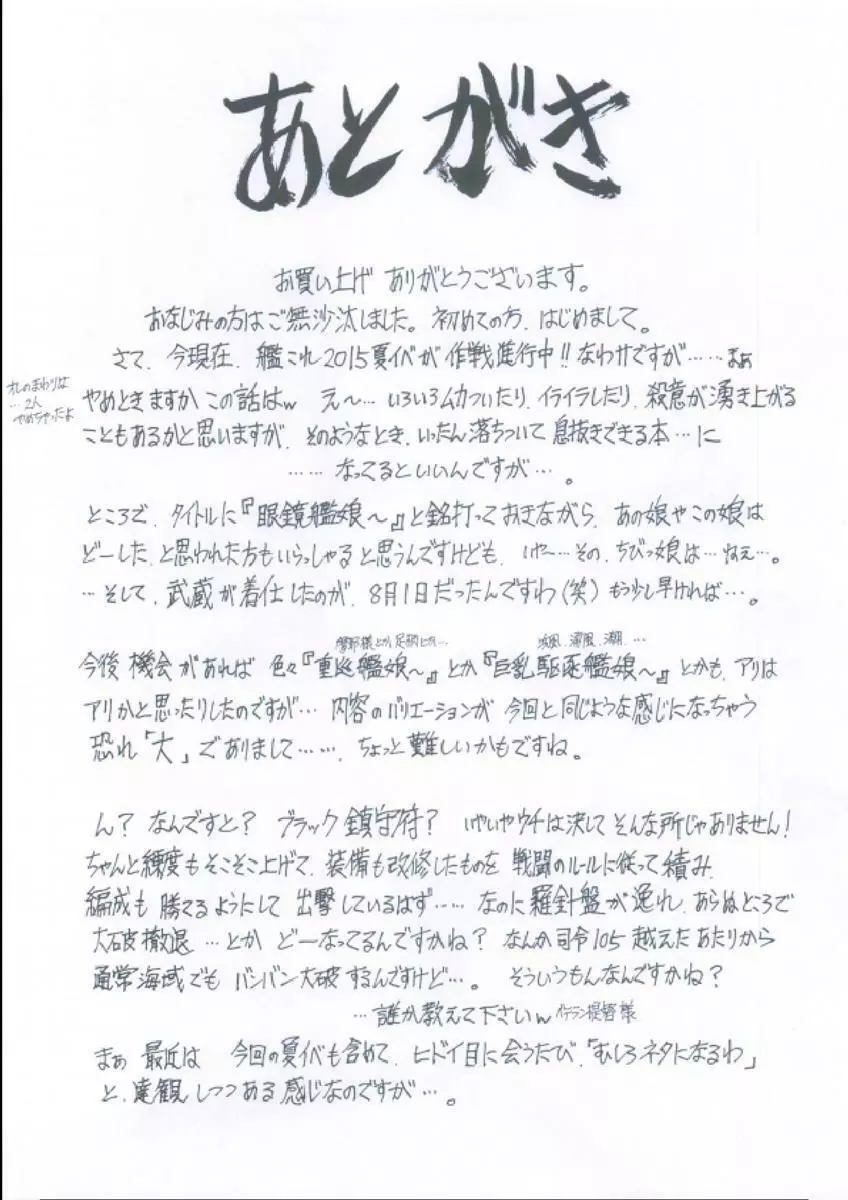 あとがき
お買い上げ ありがとうございます。
おなじみの方はご無沙汰しました。初めての方、はじめまして。
さて、今現在、艦これ2015夏イベが作戦進行中!! なわけですが……まぁ
オレのまわりは
…2人
やめちゃったよ
やめときますか この話はw え〜… いろいろムカついたり、イライラしたり、殺意が湧き上がる
こともあるかと思いますが、そのようなとき、いったん落ちついて 息抜きできる本…に
……なってるといいんですが…。
ところで、タイトルに『眼鏡艦娘〜』と銘打っておきながら、あの娘やこの娘は
どーした、と思われた方もいらっしゃると思うんですけども、いや…その、ちびっ娘は…ねぇ…。
…そして、武蔵が着任したのが、8月1日だったんですわ(笑) もう少し早ければ…。
摩耶様とか足柄とか…
浜風、潮、…
今後 機会があれば 色々『重巡艦娘〜』とか『巨乳駆逐艦娘〜』とかも、アリは
アリかと思ったりしたのですが… 内容のバリエーションが 今回と同じような感じになっちゃう
恐れ「大」でありまして……、ちょっと難しいかもですね。
ん? なんですと? ブラック鎮守府? いやいやウチは決してそんな所じゃありません!
ちゃんと練度もそこそこ上げて、装備も改修したものを 戦闘のルールに従って積み、
編成も 勝てるようにして 出撃しているはず…… なのに羅針盤が逸れ、あらぬところで
大破撤退 …とか どーなってるんですかね? なんか司令105越えたあたりから
通常海域でも バンバン大破するんですけど…。 そういうもんなんですかね?
…誰か教えて下さいw イケテラン提督様
まぁ 最近は 今回の夏イベも含めて、ヒドイ目に会うたび、「むしろネタになるわ」
と、達観しつつある感じなのですが…。